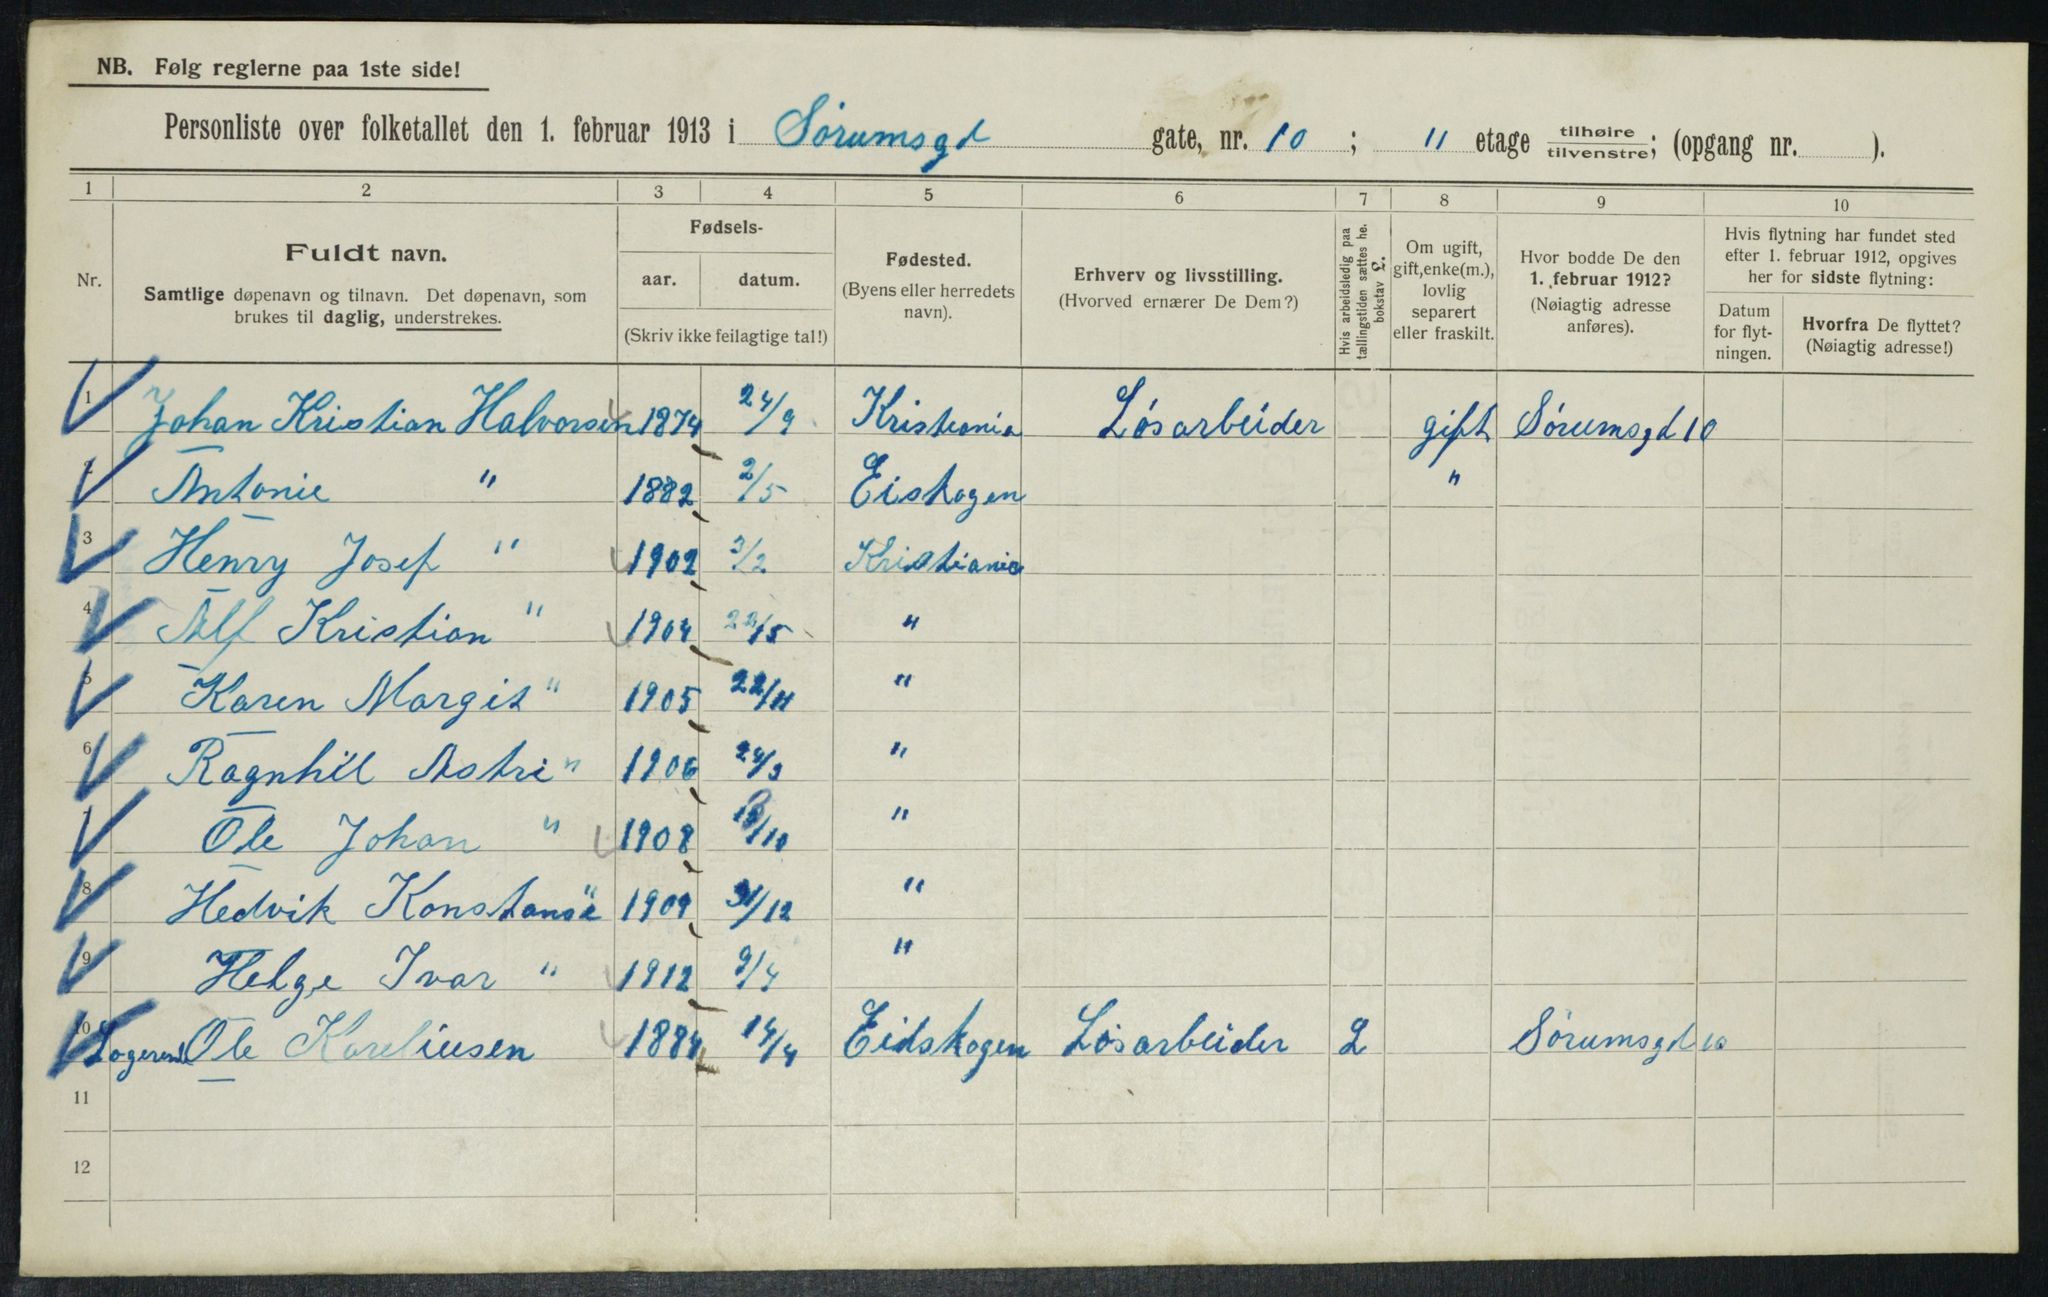 NB. Følg reglerne paa 1ste side!
Personliste over folketallet den 1. februar 1913 i Sørumsgd gate, nr. 10 ; 11 etage tilhøire/tilvenstre; (opgang nr. ).
1 2 3 4 5 6 7 8 9 10
Nr.
Fuldt navn.
Samtlige døpenavn og tilnavn. Det døpenavn, som
brukes til daglig, understrekes.
Fødsels-
aar. datum.
(Skriv ikke feilagtige tal!)
Fødested.
(Byens eller herredets
navn).
Erhverv og livsstilling.
(Hvorved ernærer De Dem?)
Hvis arbeidsledig paa
tællingstiden sættes he.
bokstav L.
Om ugift,
gift,enke(m.),
lovlig
separert
eller fraskilt.
Hvor bodde De den
1. februar 1912?
(Nøiagtig adresse
anføres).
Hvis flytning har fundet sted
efter 1. februar 1912, opgives
her for sidste flytning:
Datum
for flyt-
ningen.
Hvorfra De flyttet?
(Nøiagtig adresse!)
1 Johan Kristian Halvorsen 1874 24/9 Kristiania Løsarbeider gift Sørumsgd 10
2 Antonie " 1882 2/5 Eiskogen "
3 Henry Josef " 1902 3/2 Kristiania
4 Alf Kristian " 1904 22/5 "
5 Karen Margit " 1905 22/11 "
6 Ragnhil Astri " 1906 24/9 "
7 Ole Johan " 1908 /10 "
8 Hedvik Konstanse " 1909 31/12 "
9 Helge Ivar " 1912 9/4 "
10 Logerende Ole Koreliusen 1884 14/4 Eidskogen Løsarbeider L Sørumsgd 10
11
12